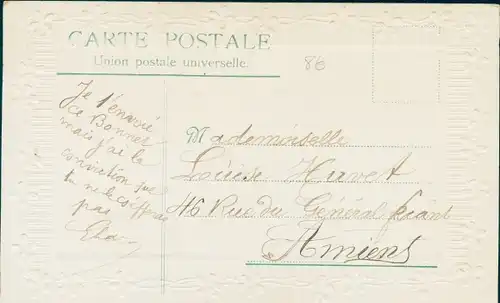 CARTE POSTALE
Union postale universelle.
86
Je t'envoie
ce Bonnet
mais j'ai la
conviction que
tu ne le coifferas
pas
Mademoiselle
Louise Huvert
46 Rue du Général
Amiens